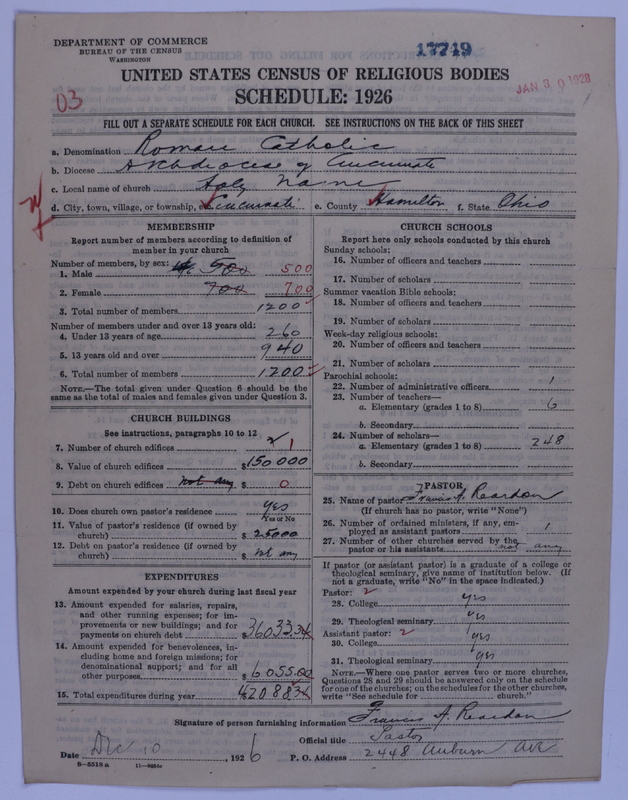 DEPARTMENT OF COMMERCE
BUREAU OF THE CENSUS
WASHINGTON
17719
JAN 30 1928
03
UNITED STATES CENSUS OF RELIGIOUS BODIES
SCHEDULE: 1926
FILL OUT A SEPARATE SCHEDULE FOR EACH CHURCH. SEE INSTRUCTIONS ON THE BACK OF THIS SHEET
a. Denomination Roman Catholic
b. Diocese Archdiocese of Cincinnati
c. Local name of church Holy Name
d. City, town, village, or township, etc. Cincinnati e. County Hamilton f. State Ohio
MEMBERSHIP
Report number of members according to definition of
member in your church
Number of members, by sex:
1. Male 500 500
2. Female 700 700
3. Total number of members 1200
Number of members under and over 13 years old:
4. Under 13 years of age 260
5. 13 years old and over 940
6. Total number of members 1200
NOTE.—The total given under Question 6 should be
same as the total of males and females given under Question 3.
CHURCH BUILDINGS
See instructions, paragraphs 10 to 12
7. Number of church edifices 1
8. Value of church edifices $150000
9. Debt on church edifices not any $ 0
10. Does church own pastor's residence yes
Yes or No
11. Value of pastor's residence (if owned by
church) $ 25000
12. Debt on pastor's residence (if owned by
church) $ not any
EXPENDITURES
Amount expended by your church during last fiscal year
13. Amount expended for salaries, repairs,
and other running expenses; for im-
provements or new buildings; and for
payments on church debt $36033.34
14. Amount expended for benevolences, in-
cluding home and foreign missions; for
denominational support; and for all
other purposes $6055.00
15. Total expenditures during year $42088.34
CHURCH SCHOOLS
Report here only schools conducted by this church
Sunday schools:
16. Number of officers and teachers
17. Number of scholars
Summer vacation Bible schools:
18. Number of officers and teachers
19. Number of scholars
Week-day religious schools:
20. Number of officers and teachers
21. Number of scholars
Parochial schools:
22. Number of administrative officers 1
23. Number of teachers—
a. Elementary (grades 1 to 8) 6
b. Secondary
24. Number of scholars—
a. Elementary (grades 1 to 8) 248
b. Secondary
PASTOR
25. Name of pastor Francis A. Reardon
(If church has no pastor, write "None")
26. Number of ordained ministers, if any, em-
ployed as assistant pastors 1
27. Number of other churches served by the
pastor or his assistants not any
If pastor (or assistant pastor) is a graduate of a college or
theological seminary, give name of institution below. (If
not a graduate, write "No" in the space indicated.)
Pastor: 2
28. College yes
29. Theological seminary yes
Assistant pastor: 2
30. College yes
31. Theological seminary yes
NOTE.—Where one pastor serves two or more churches,
Questions 28 and 29 should be answered only on the schedule
for one of the churches; on the schedules for the other churches,
write "See schedule for church."
Signature of person furnishing information Francis A. Reardon
Official title Pastor
Date Dec 10, 1926 P. O. Address 2448 Auburn Ave
8-5518 a